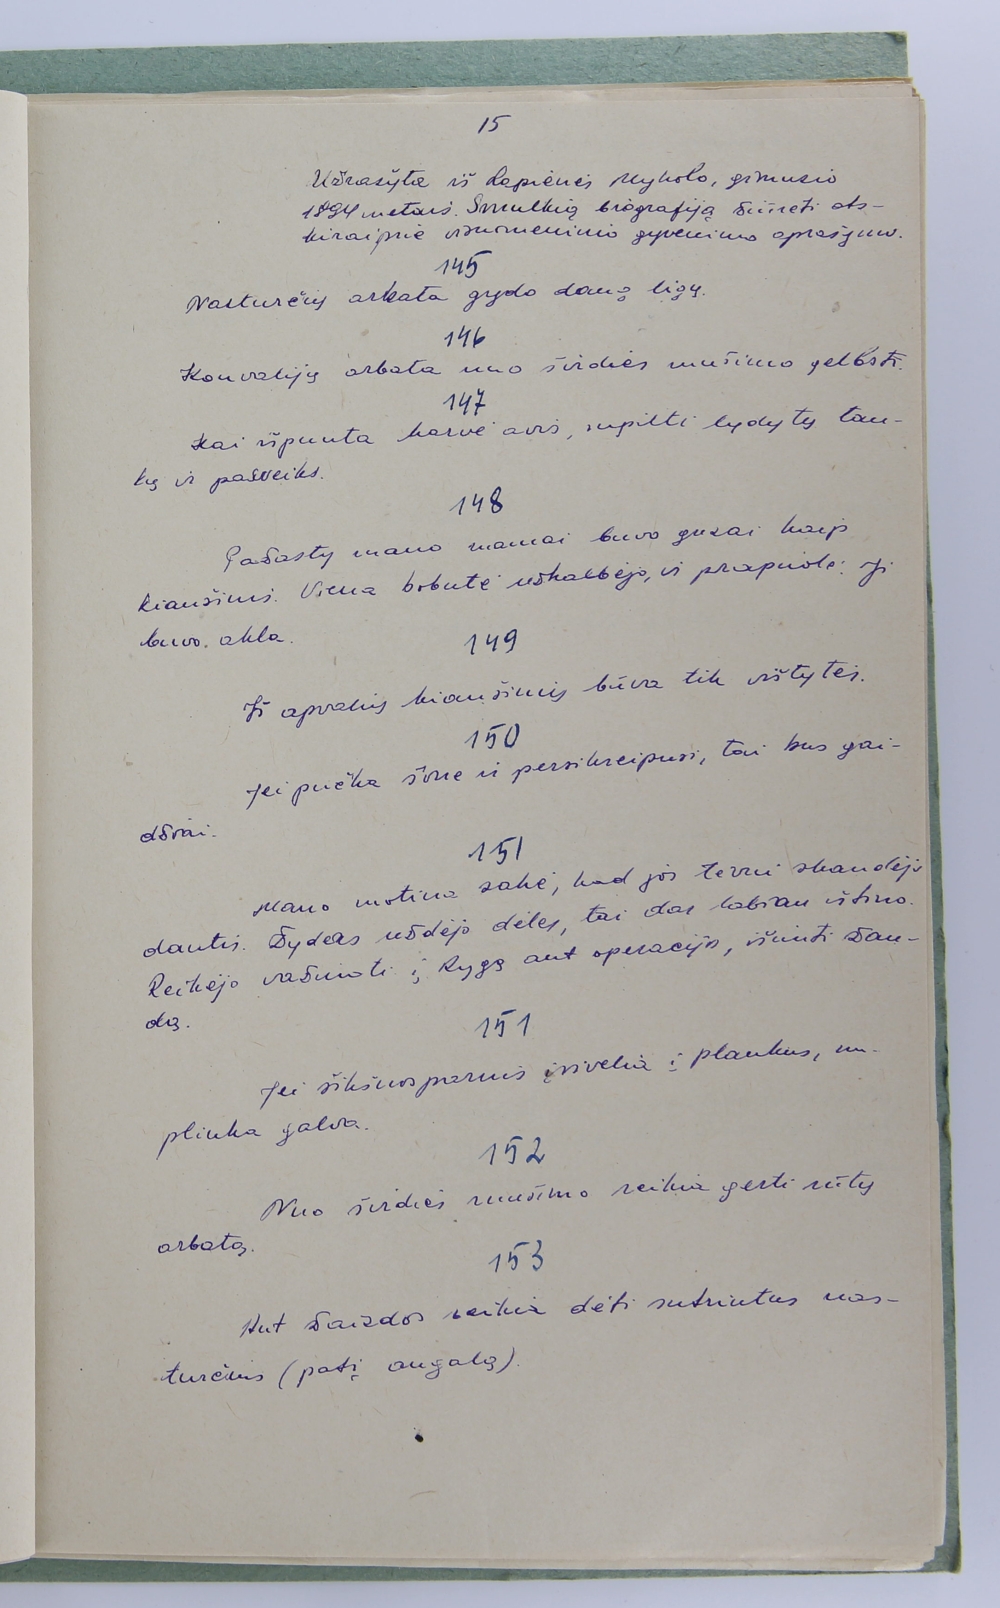 15
Užrašyta iš Lapienės Mykolo, gimusio
1894 metais. Smulkią biografiją žiūrėti ats-
kirai prie visuomeninio gyvenimo aprašymo.
145
Nasturčių arbata gydo daug ligų.
146
Konvalijų arbata nuo širdies mušimo gelbsti.
147
Kai išpunta karvė avis, supilti lydytų tau-
kų ir pasveiks.
148
Pažastų mano mamai buvo guzai kaip
kiaušinis. Viena bobutė užkalbėjo, ir prapuolė. Ji
buvo akla.
149
Iš apvalių kiaušinių būva tik vištytės.
150
Jei pučka šone ir persikreipusi, tai bus gai-
džiai.
151
Mano motina sakė, kad jos tėvui skaudėjo
dantis. Žydas uždėjo dėles, tai dar labiau ištino.
Reikėjo važiuoti į Rygą ant operacijos, išimti žan-
dą.
151
Jei šikšnosparnis įsivelia į plaukus, nu-
plinka galva.
152
Nuo širdies mušimo reikia gerti rūtų
arbatą.
153
Ant žaizdos reikia dėti sutrintus nas-
turčius (patį augalą).